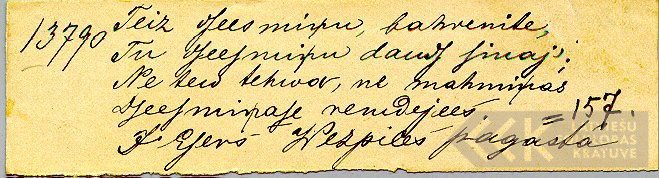 13790 Teiz dseesmiņu, bahrenite,
Tu dseesmiņu daudſ ſinaji;
Ne tew tehwa, ne mahmiņas
Dseeſmiņaſe remdejees = 157.
J Eſers Wezpiles pagastā